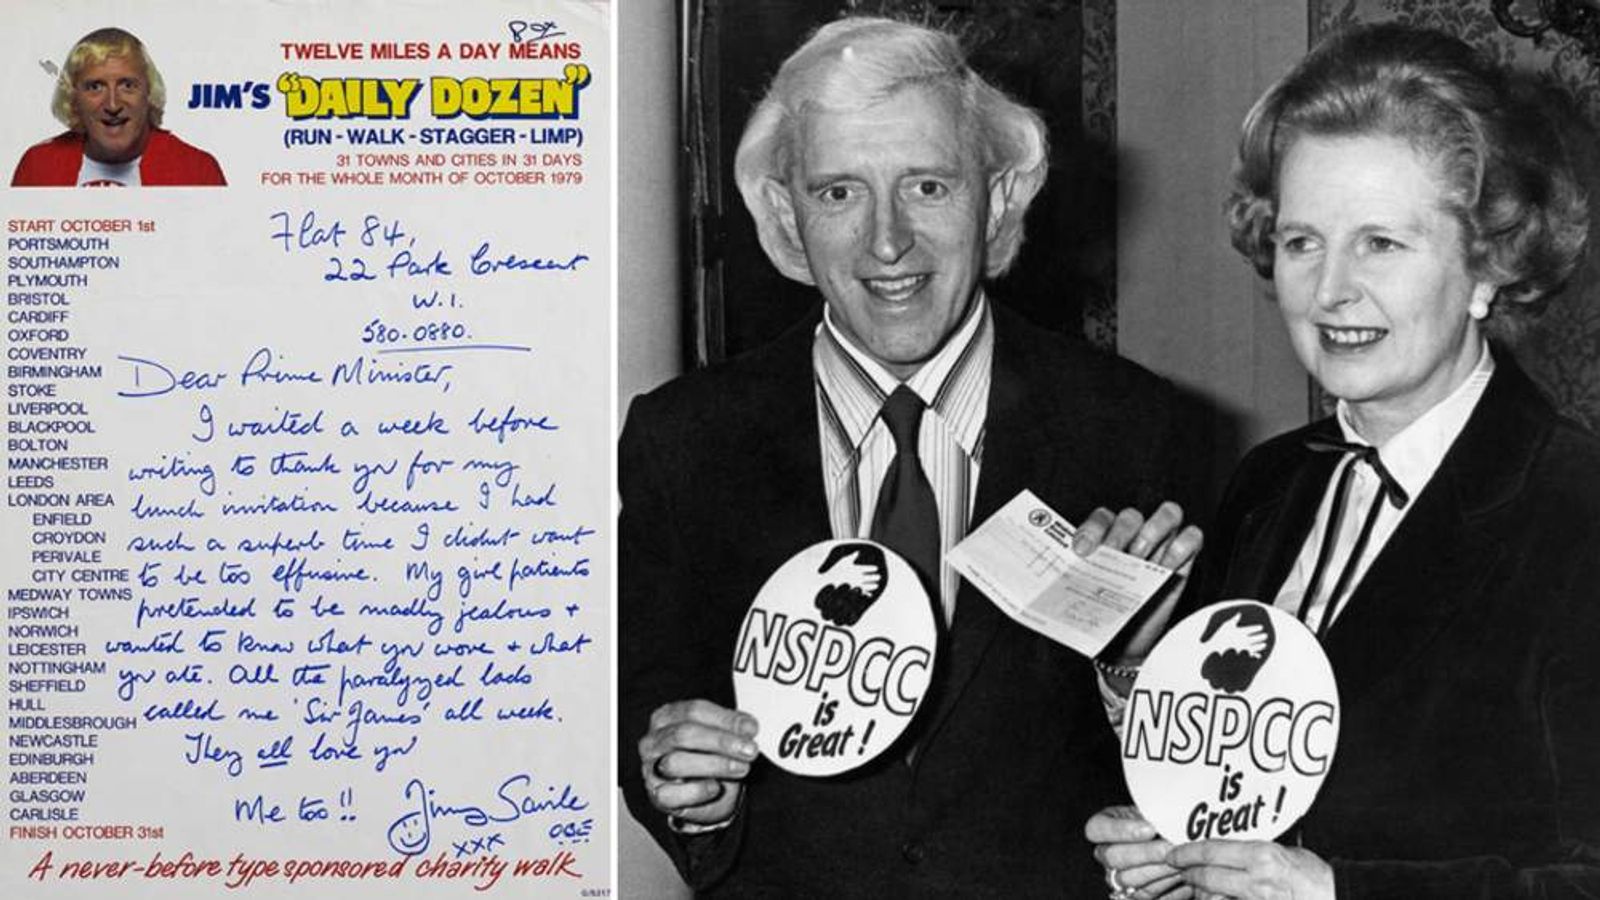 TWELVE MILES A DAY MEANS
JIM'S "DAILY DOZEN"
(RUN - WALK - STAGGER - LIMP)
31 TOWNS AND CITIES IN 31 DAYS
FOR THE WHOLE MONTH OF OCTOBER 1979
START OCTOBER 1st
PORTSMOUTH
SOUTHAMPTON
PLYMOUTH
BRISTOL
CARDIFF
OXFORD
COVENTRY
BIRMINGHAM
STOKE
LIVERPOOL
BLACKPOOL
BOLTON
MANCHESTER
LEEDS
LONDON AREA
ENFIELD
CROYDON
PERIVALE
CITY CENTRE
MEDWAY TOWNS
IPSWICH
NORWICH
LEICESTER
NOTTINGHAM
SHEFFIELD
HULL
MIDDLESBROUGH
NEWCASTLE
EDINBURGH
ABERDEEN
GLASGOW
CARLISLE
FINISH OCTOBER 31st
Flat 84,
22 Park Crescent
W.1.
580.0880.
Dear Prime Minister,
I waited a week before
writing to thank you for my
lunch invitation because I had
such a superb time I didnt want
to be too effusive. My girl patients
pretended to be madly jealous +
wanted to know what you wore + what
you ate. All the paralyzed lads
called me 'Sir James' all week.
They all love you
Me too!! Jimmy Savile
OBE
xxx
A never-before type sponsored charity walk
NSPCC
is
Great!
NSPCC
is
Great!